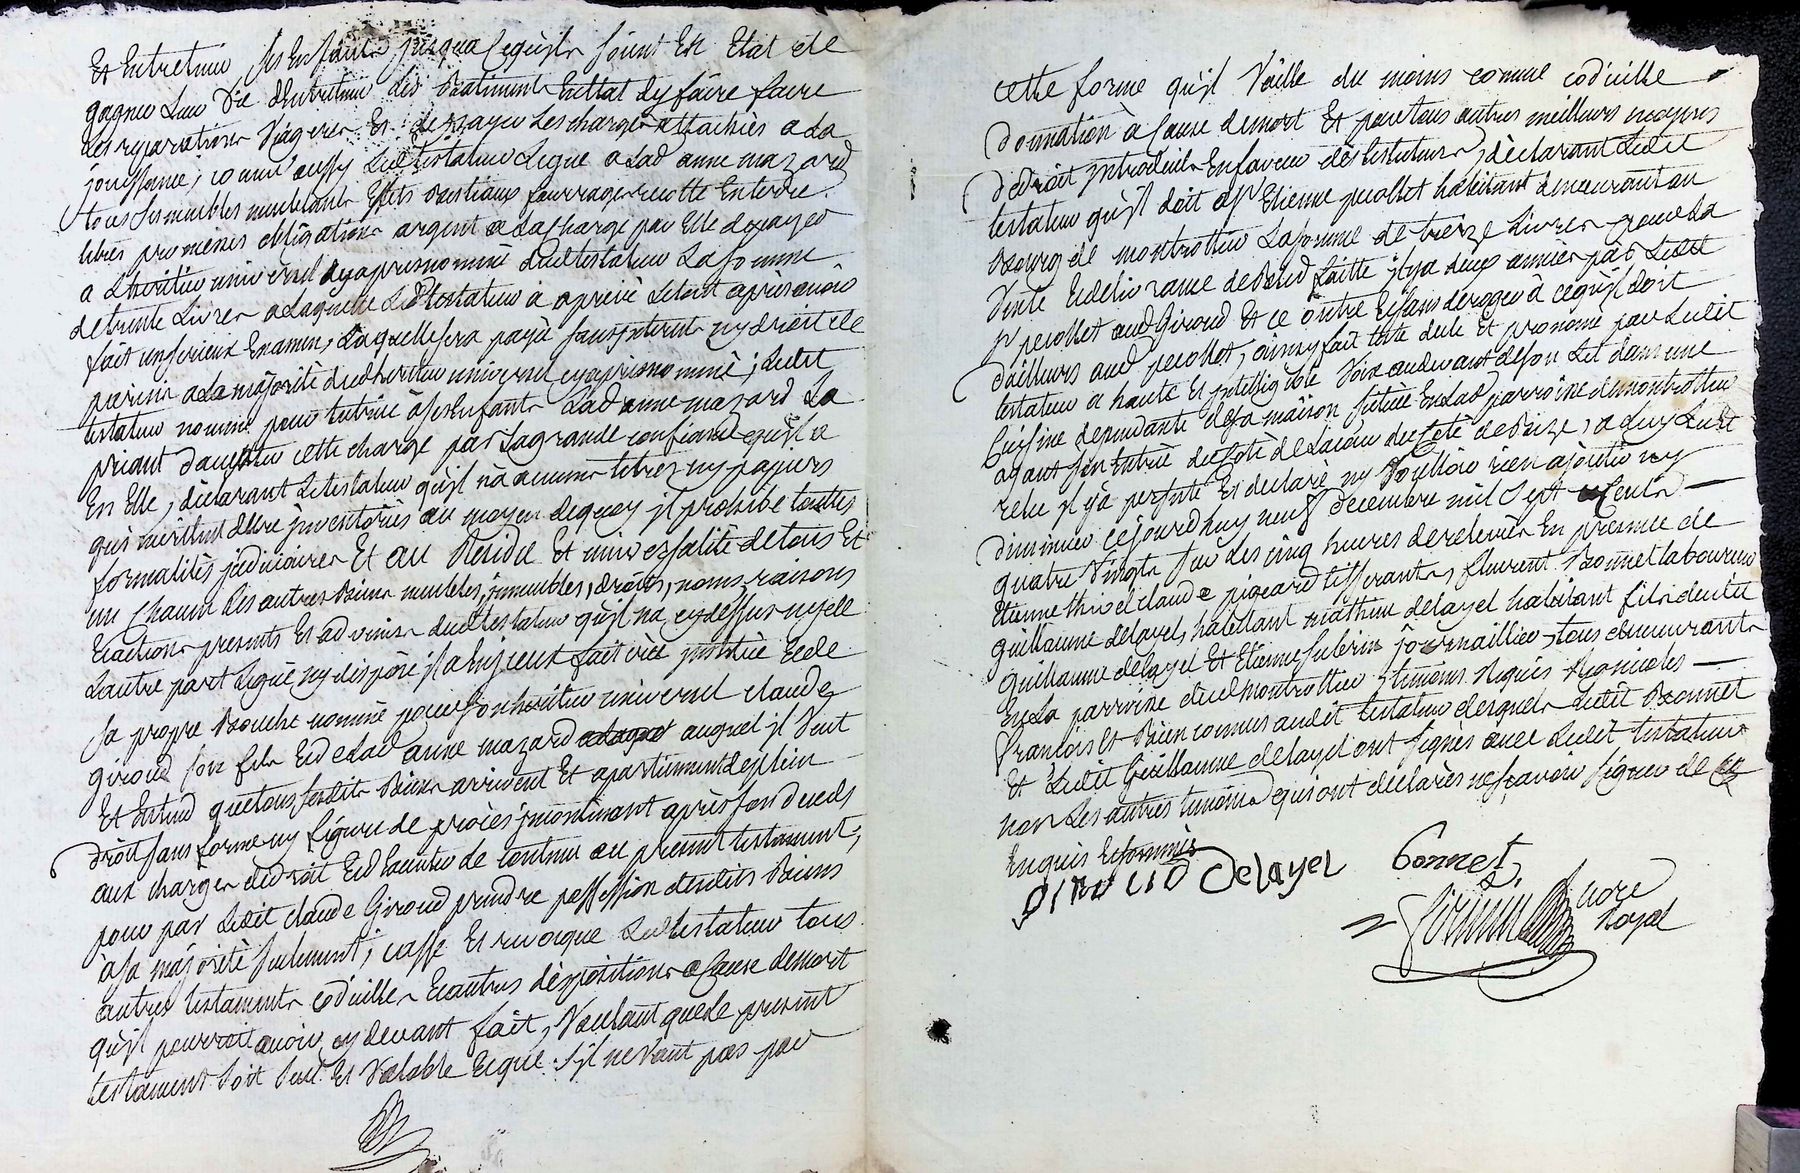 Et Entretenir ses Enfants jusqua cequils soient En Etat de
gagner Leur Vie dEntretenir les Batiments Enettat dy faire faire
Les reparations Viageres Et de payer Les charges attachées a La
jouissance, comme aussy Ledtestateur Legue a Lad anne mazard
tous ses meubles meublants Effets bestiaux fourrages recotte Enterre
titres promesses obligations argent a La charge par Elle de payer
a Lheritier universel cyapres nommé dudtestateur La somme
de trente Livres a Laquelle Ledtestateur a aprecié Letout après avoir
fait un serieux Examen, Laquelle sera payée sans interest ny droit de
parvenir a La majorité dudheritier universel cyapres nommé; Ledit
testateur nomme pour tutrice à ses Enfants Lad anne mazard La
priant d'accepter cette charge par La grande confiance qu'il a
En Elle, déclarant Letestateur qu'il n'a aucuns titres ny papiers
qui meritent dEtre jnventoriés au moyen de quoy jl prohibe touttes
formalités judiciaires Et au Residu Et universalité de tous Et
un chacun Ses autres Biens meubles, jmmeubles, droits, noms, raisons
Et actions presents Et advenir dudtestateur qu'il n'a cy dessus ny de
Lautre part Legué ny disposé jl a fait créé jnstitué Et de
sa propre Bouche nommé pour son heritier universel claude
giroud son fils Et de Lad anne mazard auquel jl Veut
Et Entend que tous sesdits Biens arrivent Et apartiennent de plein
droit sans forme ny figure de procès jncontinant après son deceds
aux charges de droit Et d'Executer le contenu au present testament,
pour par Ledit claude Giroud prendre possession desdits Biens
à sa majorité seulement; casse Et revoque Ledtestateur tous
autres testaments codicilles Et autres dispositions a cause de mort
qu'il pourroit avoir cy devant fait, Voulant que le present
testament soit seul Et Valable Et que s'il ne Vaut pas par
cette forme qu'il Vaille du moins comme codicille
donnation à cause de mort Et par tous autres meilleurs moyens
de droit jntroduits En faveur des testateurs, déclarant Ledit
testateur qu'il doit a Sr Etienne peollet habitant demeurant au
Bourg de montrottier La somme de treize Livres pour La
Vente Et delivrance de Bled faitte jl y a deux années par Ledit
Sr peollet aud Giroud Et ce outre Et sans deroger à ce qu'il doit
d'ailleurs aud peollet, ainsy fait testé dicté Et prononcé par Ledit
testateur a haute Et jntelligible Voix au devant de son Lit dans une
Cuisine dependante de sa maison située En Lad parroisse de montrottier
ayant son Entrée du coté de La cour du coté de Bize, a Luy Ledt
relu jl y a persisté Et declaré ny Vouloir rien ajouter ny
diminuer cejourdhuy neuf decembre mil Sept Cents
quatre Vingt sur Les cinq heures de relevée En presence de
Etienne thivel claude pigeard tisserants, fleurent Bonnet laboureur
guillaume delayel, habittant mathieu delayel habitant fils dudit
guillaume delayel Et Etienne Subrin journaillier, tous demeurants
En La parroisse dud montrottier temoins Requis Regnicoles
francois Et Bien connus audit testateur desquels Ledit Bonnet
Et Ledit Guillaume delayel ont signés avec Ledit testateur
non Les autres temoins qui ont déclarés ne sçavoir signer de ce
Enquis Et sommés
giroud Delayel bonnet
nore
Royal